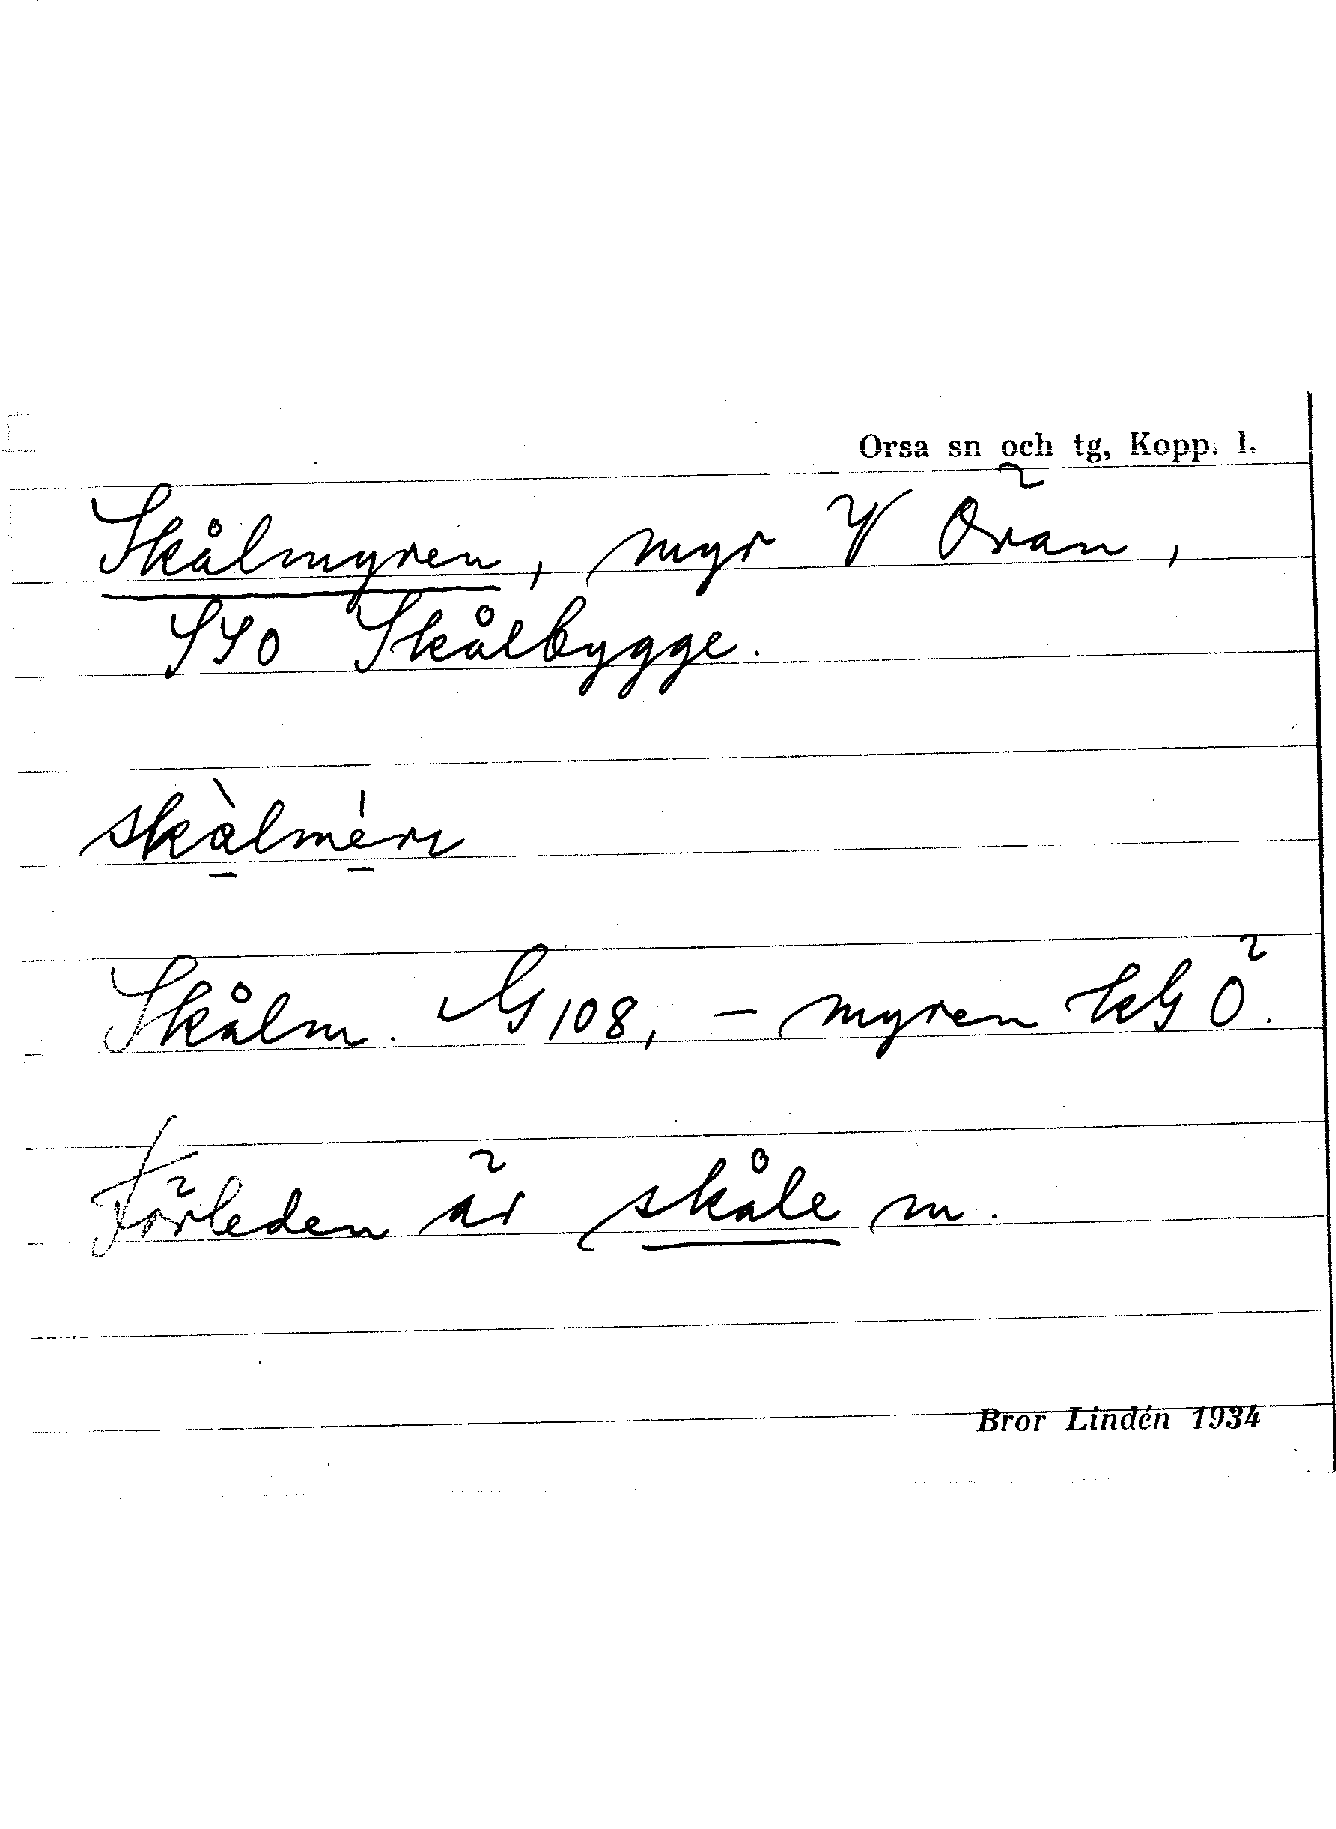 Orsa sn och tg, Kopp. l.
Skålmyren, myr V Öran,
SSO Skålbygge.
skàlméri
Skålm. G 108, - myren kG Ö.
Förleden är skåle m.
Bror Lindén 1934